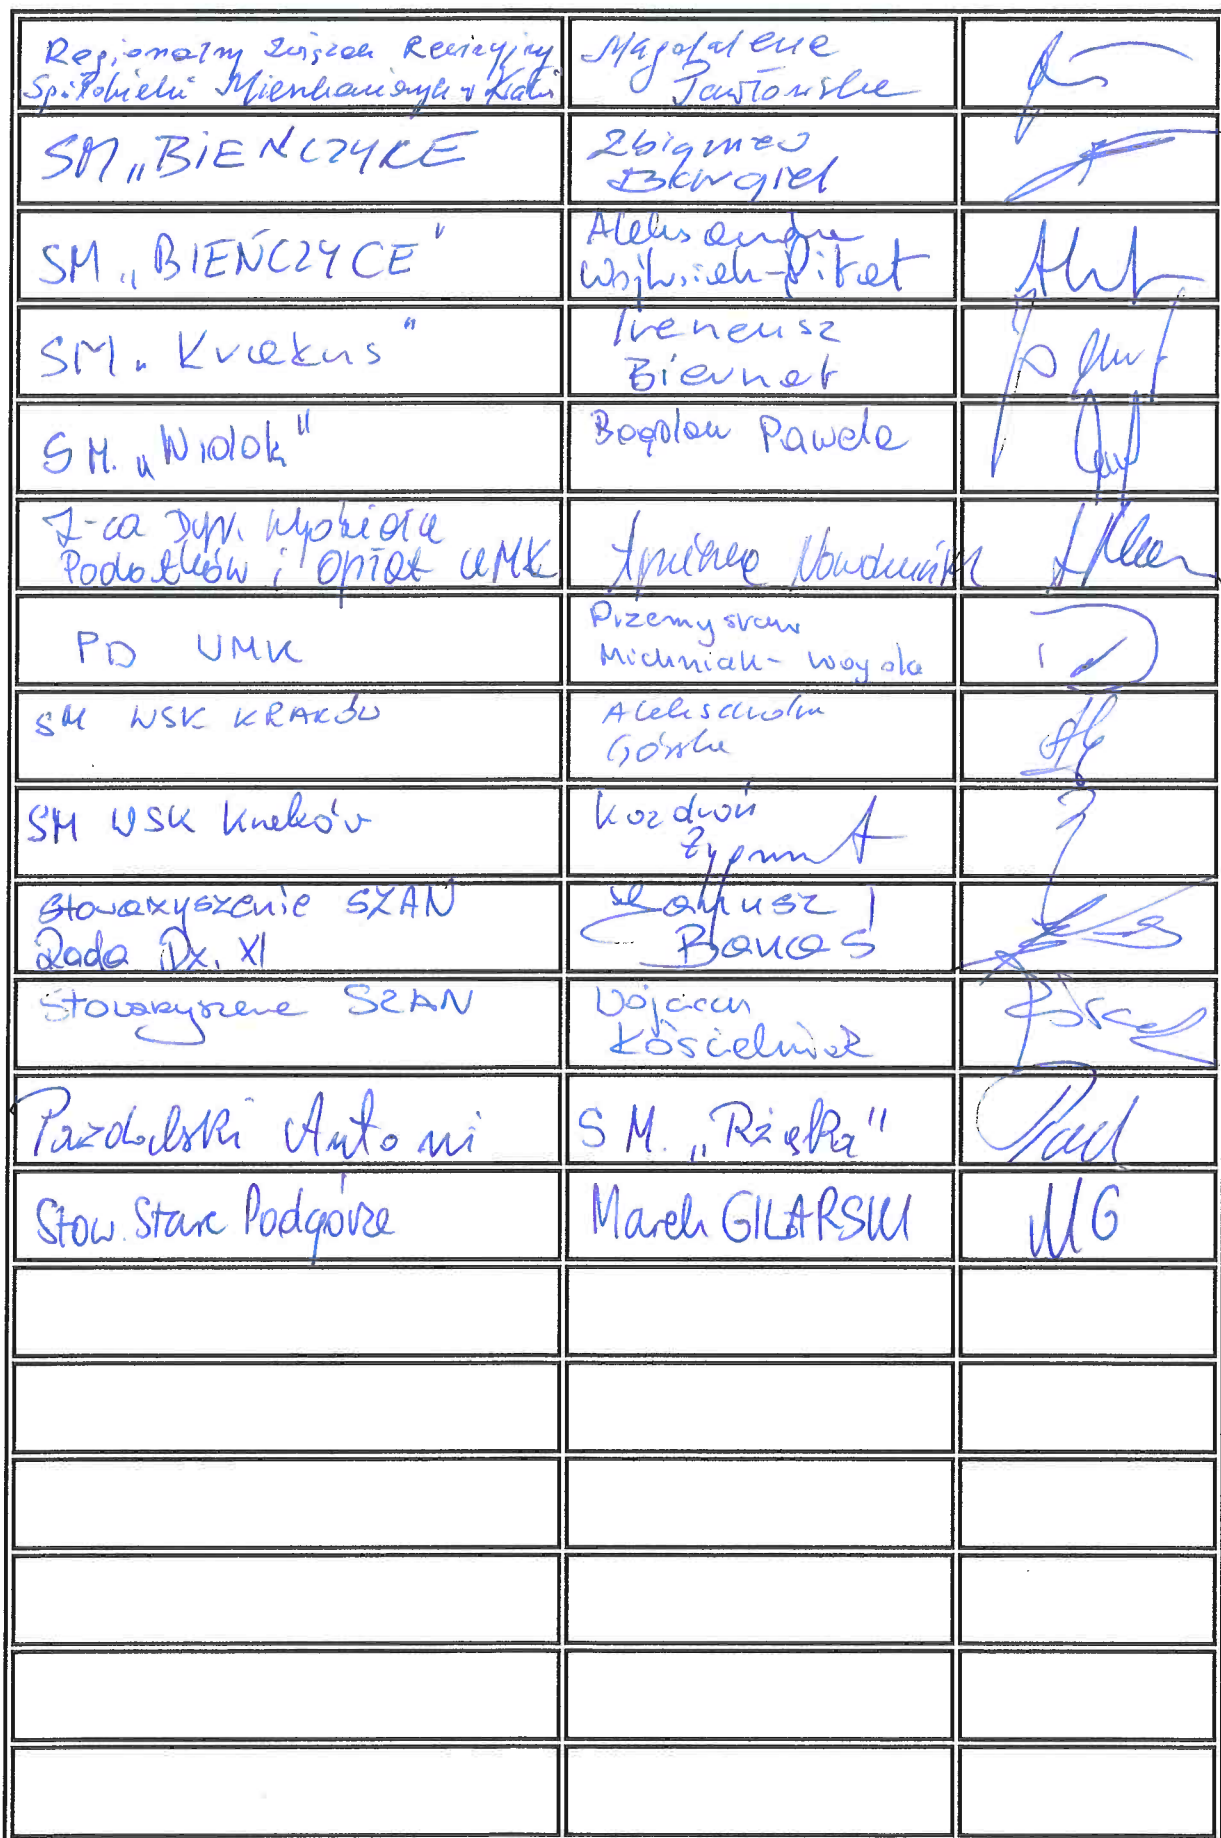 Regionalny Związek Rewizyjny Magdalena
Spółdzielni Mieszkaniowych w Krak. Pawłowska
SM „BIEŃCZYCE Zbigniew
Bargiel
SM „BIEŃCZYCE" Aleksandra
SM „Krakus" Ireneusz
Biernat
SM. „Widok" Bogdan Pawela
Z-ca Dyr. Wydziału
Podatków i Opłat UMK
PD UMK Przemysław
Michniak-
SM WSK KRAKÓW Aleksandra
Górska
SM WSK Kraków Kozdroń
Zygmunt
Stowarzyszenie SZAN Janusz
Rada Dz. XI Banaś
Stowarzyszenie SZAN Wojciech
Kościelniak
Pazdalski Antoni S M. „Rżąka"
Stow. Stare Podgórze Marek GILARSKI MG